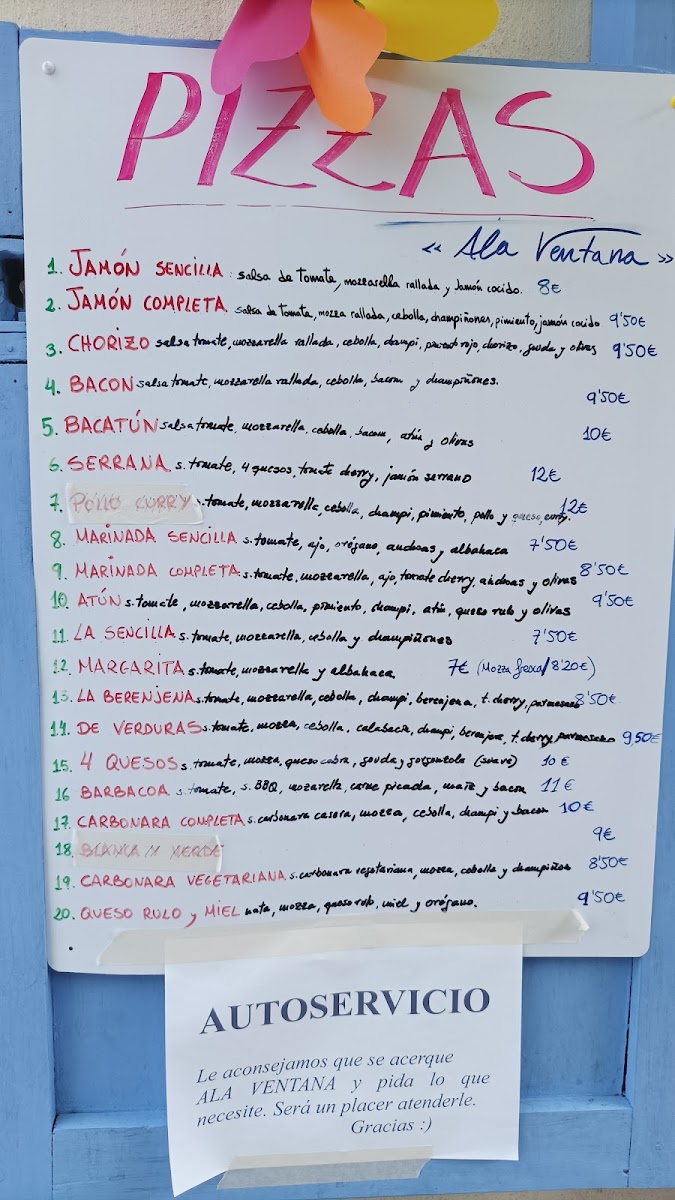 PIZZAS
« Ala Ventana »
1. JAMÓN SENCILLA: salsa de tomate, mozzarella rallada y Jamón cocido. 8€
2. JAMÓN COMPLETA salsa de tomate, mozza rallada, cebolla, champiñones, pimiento, jamón cocido 9'50€
3. CHORIZO salsa tomate, mozzarella rallada, cebolla, champi, rojo, chorizo, gouda y olivas 9'50€
4. BACON salsa tomate, mozzarella rallada, cebolla, bacon y champiñones.
9'50€
5. BACATÚN salsa tomate, mozzarella, cebolla, bacon, atún y olivas 10€
6. SERRANA s. tomate, 4 quesos, tomate cherry, jamón serrano 12€
7. POLLO CURRY s. tomate, mozzarella, cebolla, champi, pimiento, pollo y queso, curry. 12€
8. MARINADA SENCILLA s. tomate, ajo, orégano, anchoas y albahaca 7'50€
9. MARINADA COMPLETA s. tomate, mozzarella, ajo, tomate cherry, anchoas y olivas 8'50€
10. ATÚN s. tomate, mozzarella, cebolla, pimiento, champi, atún, queso rulo y olivas 9'50€
11. LA SENCILLA s. tomate, mozzarella, cebolla y champiñones 7'50€
12. MARGARITA s. tomate, mozzarella y albahaca 7€ (Mozza fresca/8'20€)
13. LA BERENJENA s. tomate, mozzarella, cebolla, champi, berenjena, t. cherry, parmesano 8'50€
14. DE VERDURAS s. tomate, mozza, cebolla, calabacín, champi, berenjena, t. cherry parmesano 9,50€
15. 4 QUESOS s. tomate, mozza, queso cabra, gouda y gorgonzola (suave) 10€
16 BARBACOA s. tomate, s. BBQ, mozarella, carne picada, maíz y bacon 11€
17. CARBONARA COMPLETA s. carbonara casera, mozza, cebolla, champi y bacon 10€
18. BLANCA/M VERDE 9€
19. CARBONARA VEGETARIANA s. carbonara vegetariana, mozza, cebolla y champiñón 8'50€
20. QUESO RULO y MIEL nata, mozza, queso rulo, miel y orégano. 9'50€
AUTOSERVICIO
Le aconsejamos que se acerque
ALA VENTANA y pida lo que
necesite. Será un placer atenderle.
Gracias :)